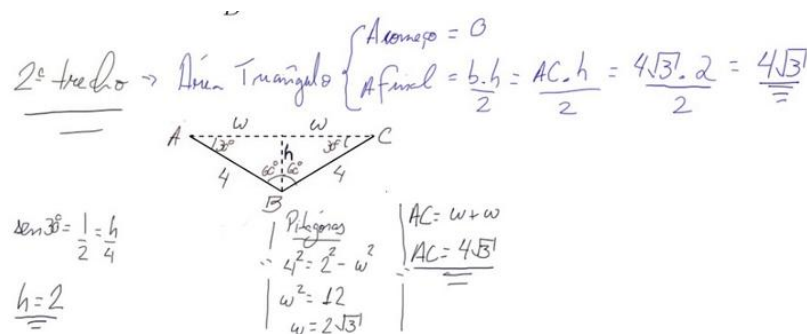 2º trecho → Área Triângulo { A começo = 0
A final = b.h/2 = AC.h/2 = 4√3.2/2 = 4√3
w w
A 30° h 30° C
4 60° 60° 4
B
sen30° = 1/2 = h/4
h = 2
Pitágoras
4² = 2² - w²
w² = 12
w = 2√3
AC = w + w
AC = 4√3